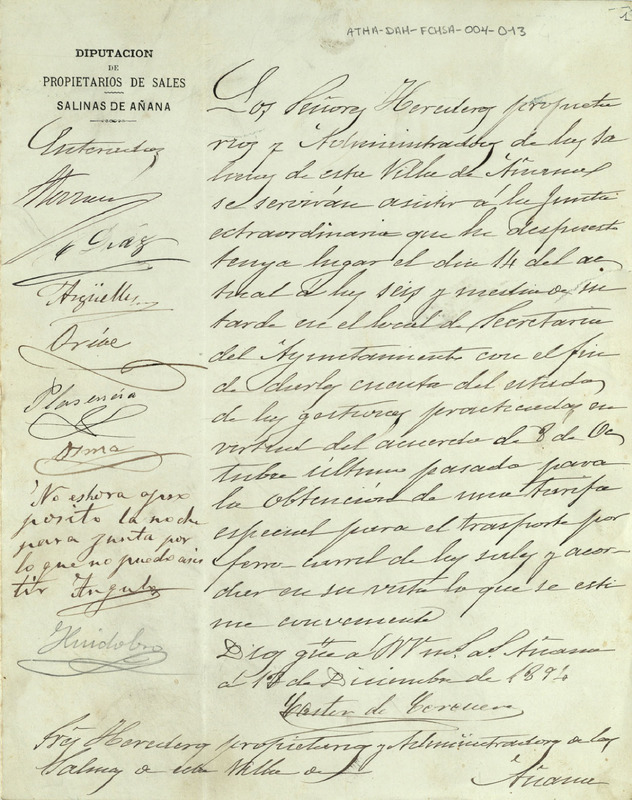 ATHA-DAH-FCHSA-004-013
DIPUTACION
DE
PROPIETARIOS DE SALES
SALINAS DE AÑANA
Enterados
Herran
Diáz
Argüelles
Oribe
Plasencia
Osma
No es hora apro
posito la noche
para junta por
lo que no puedo asis
tir Angulo
Huidobro
Los Señores Herederos propieta
rios y Administradores de las Sa
linas de esta Villa de Añana
se servirán asistir á la Junta
extraordinaria que he dispuesto
tenga lugar el dia 14 del ac
tual á las seis y media de su
tarde en el local de Secretaria
del Ayuntamiento con el fin
de darles cuenta del estado
de las gestiones practicadas en
virtud del acuerdo de 8 de Oc
tubre último pasado para
la obtención de una tarifa
especial para el trasporte por
ferro-carril de las sales y acor
dar en su vista lo que se esti
me conveniente
Dios güe á VV ms. as. Añana
á 13 de Diciembre de 1894
Castor de
Sres Herederos propietarios y Administradores de las
Salinas de esta Villa de
Añana